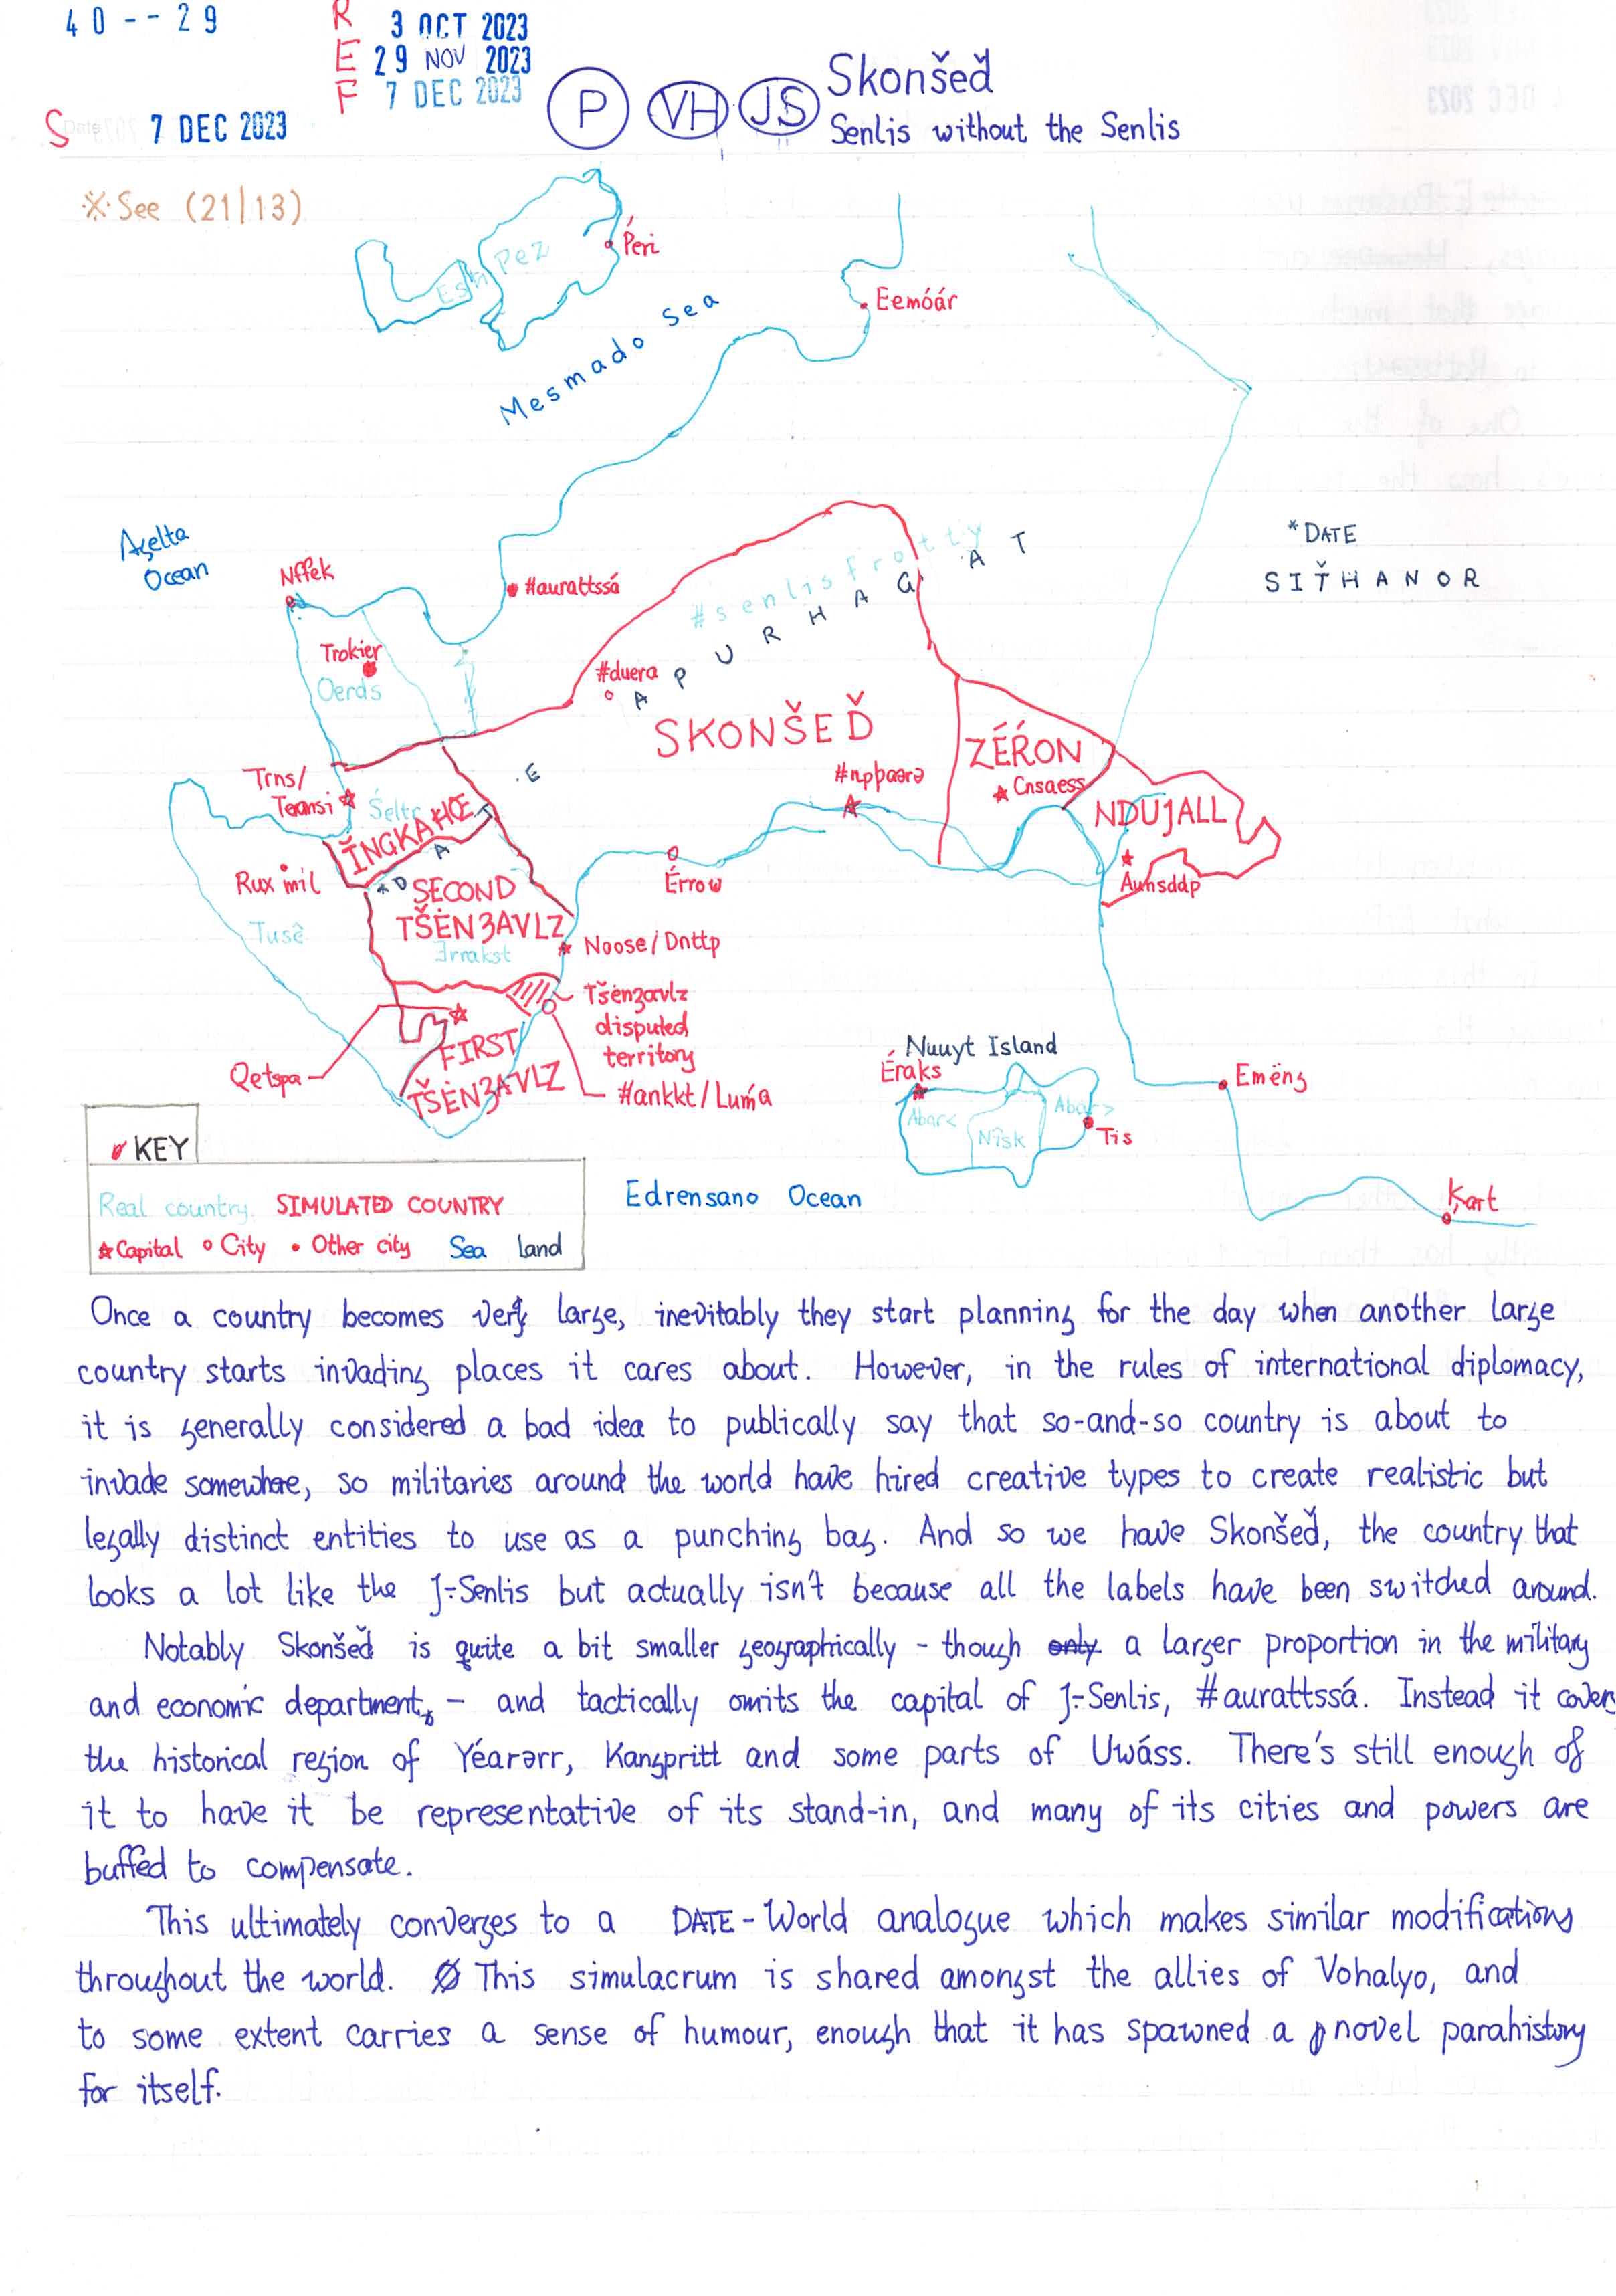 40--29
R
E
F
3 OCT 2023
29 NOV 2023
7 DEC 2023
S
Date
7 DEC 2023
P
VH
JS
Skonšeď
Senlis without the Senlis
※ See (21/13)
Esh
Pez
Péri
Mesmado Sea
Eemóár
Açelta
Ocean
Nffek
#aurattssá
#senlisfrotty
*DATE
SIŤHANOR
APURHAGAT
Trokier
Oerds
#duera
SKONŠEĎ
ZÉŔON
Cnsaess
#npþaərə
NDUJALL
Aunsddp
Trns/
Teansi
Šeltr
ǏNGKAHŒ
*DATE
Rux mil
SECOND
TŠĖNƷAVLZ
Ǝrrakst
Tusê
Érrow
Noose/Dnttp
Tšėnʒavlz
disputed
territory
Qetspa
FIRST
TŠĖNƷAVLZ
#ankkt/Luḿa
Nuuyt Island
Éraks
Abar<
Nîsk
Abar>
Tis
Emëng
Kart
Edrensano Ocean
KEY
Real country SIMULATED COUNTRY
Capital City Other city Sea land
Once a country becomes very large, inevitably they start planning for the day when another large
country starts invading places it cares about. However, in the rules of international diplomacy,
it is generally considered a bad idea to publically say that so-and-so country is about to
invade somewhere, so militaries around the world have hired creative types to create realistic but
legally distinct entities to use as a punching bag. And so we have Skonšeď, the country that
looks a lot like the J-Senlis but actually isn't because all the labels have been switched around.
Notably Skonšeď is quite a bit smaller geographically - though only a larger proportion in the military
and economic department, - and tactically omits the capital of J-Senlis, #aurattssá. Instead it covers
the historical region of Yéarərr, Kangpritt and some parts of Uwáss. There's still enough of
it to have it be representative of its stand-in, and many of its cities and powers are
buffed to compensate.
This ultimately converges to a DATE-World analogue which makes similar modifications
throughout the world. This simulacrum is shared amongst the allies of Vohalyo, and
to some extent carries a sense of humour, enough that it has spawned a novel parahistory
for itself.